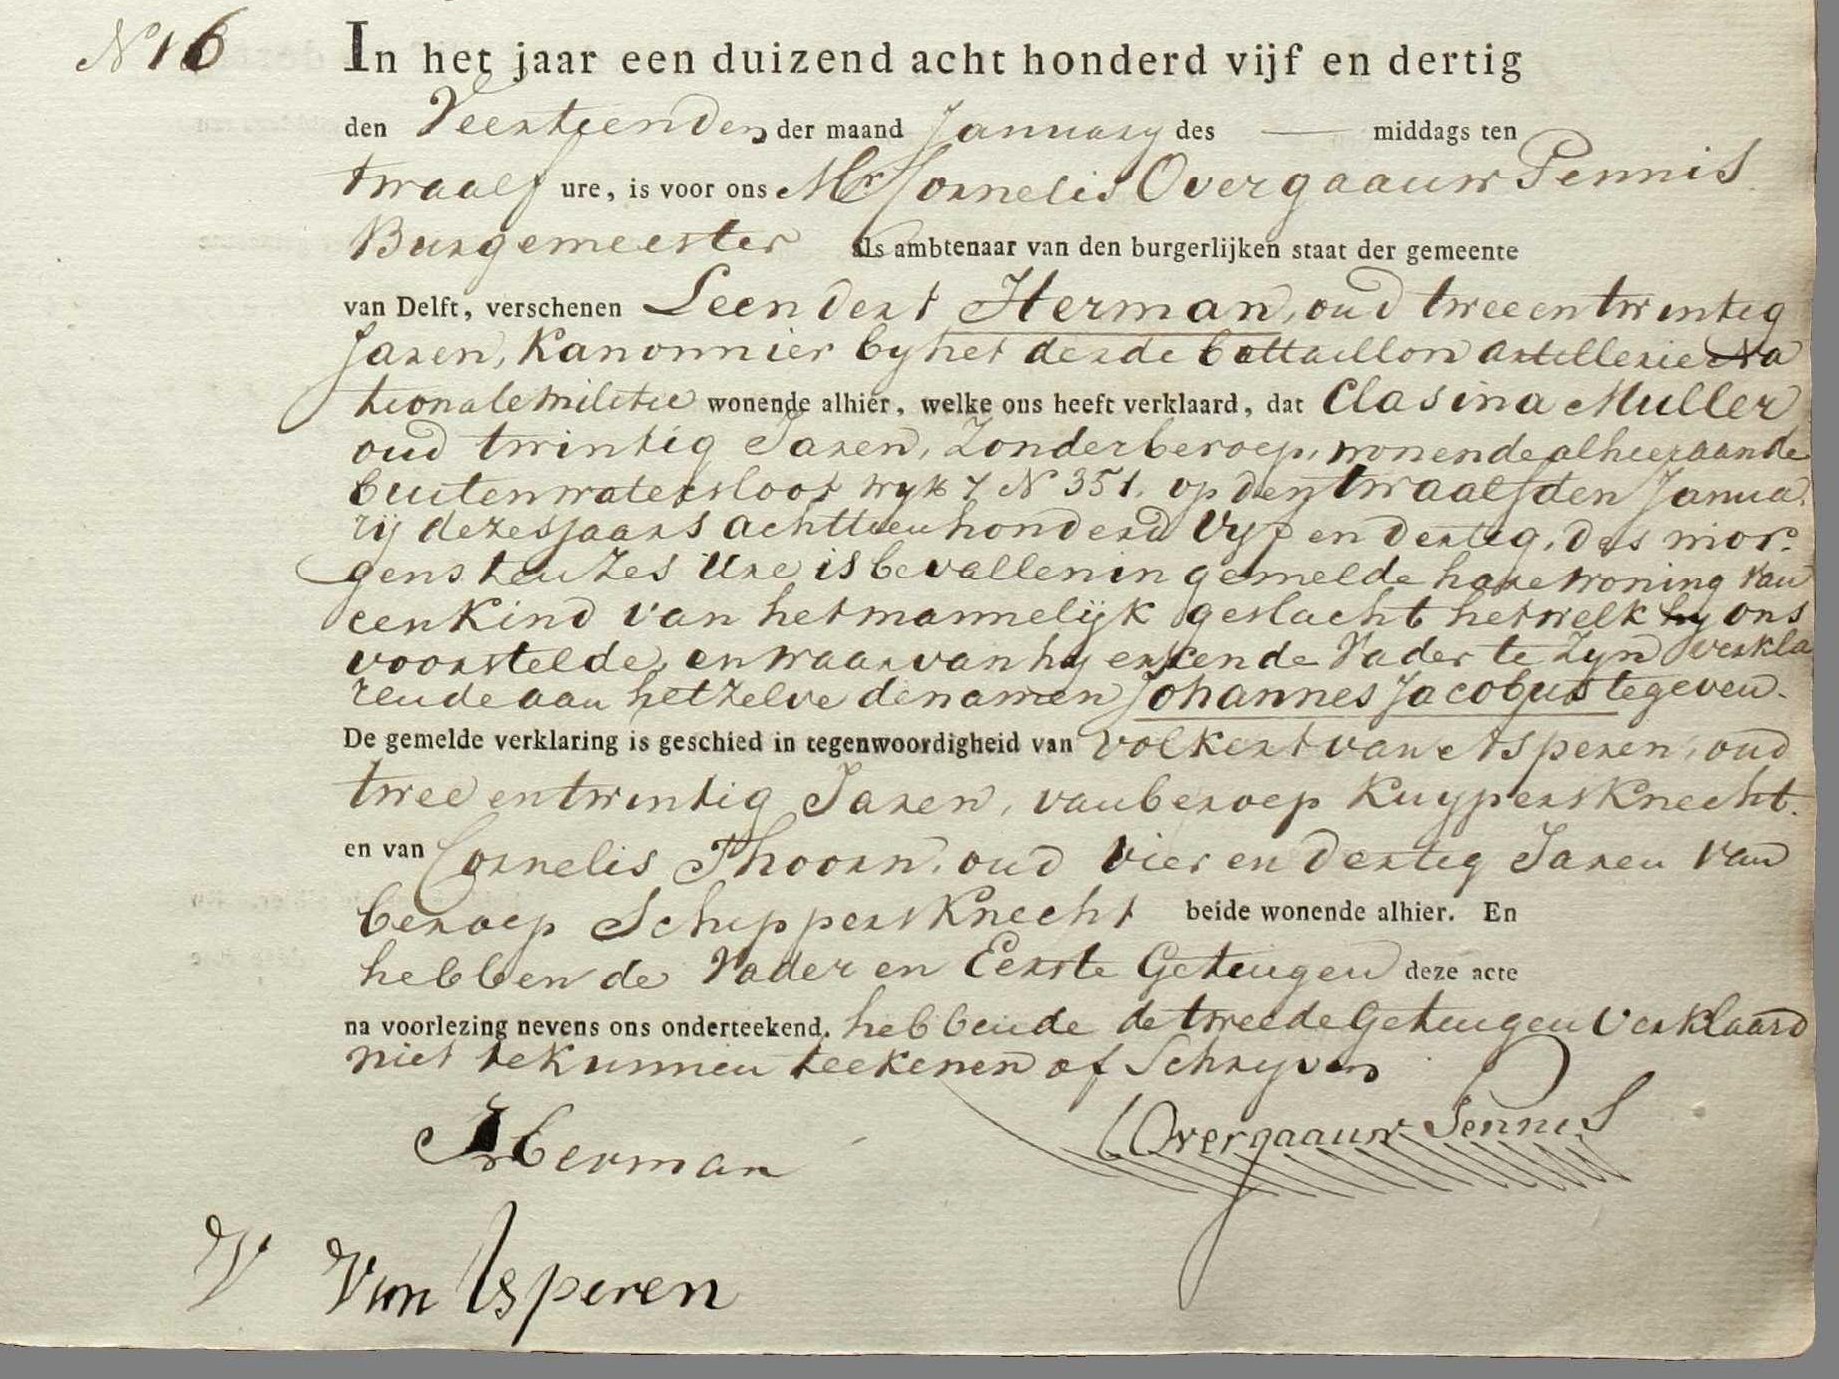 N 16 In het jaar een duizend acht honderd vijf en dertig
den Veertienden der maand January des — middags ten
twaalf ure, is voor ons Mr Cornelis Overgaauw Pennis
Burgemeester als ambtenaar van den burgerlijken staat der gemeente
van Delft, verschenen Leendert Herman, oud twee en twintig
Jaren, Kanonnier by het derde battaillon artillerie Na
tionale Militie wonende alhier, welke ons heeft verklaard, dat Clasina Muller
oud twintig Jaren, Zonder beroep, wonende alhier aan de
buitenwatersloot wyk 7 N 351. op den twaalfden Janua
rij dezes jaars achttienhonderd Vyf en dertig, des mor-
gens ten Zes Ure is bevallen in gemelde hare woning van
een Kind van het mannelijk geslacht hetwelk hy ons
voorstelde, en waarvan hy erkende Vader te Zyn verkla
rende aan hetzelve de namen Johannes Jacobus te geven.
De gemelde verklaring is geschied in tegenwoordigheid van Volkert van Asperen, oud
twee en twintig Jaren, van beroep Kuypersknecht.
en van Cornelis Thoorn, oud vier en dertig Jaren van
beroep Schippersknecht beide wonende alhier. En
hebben de Vader en Eerste Getuigen deze acte
na voorlezing nevens ons onderteekend. hebbende de tweede Getuigen Verklaard
niet te kunnen teekenen of Schryven
Herman
C Overgaauw Pennis
V Van Asperen